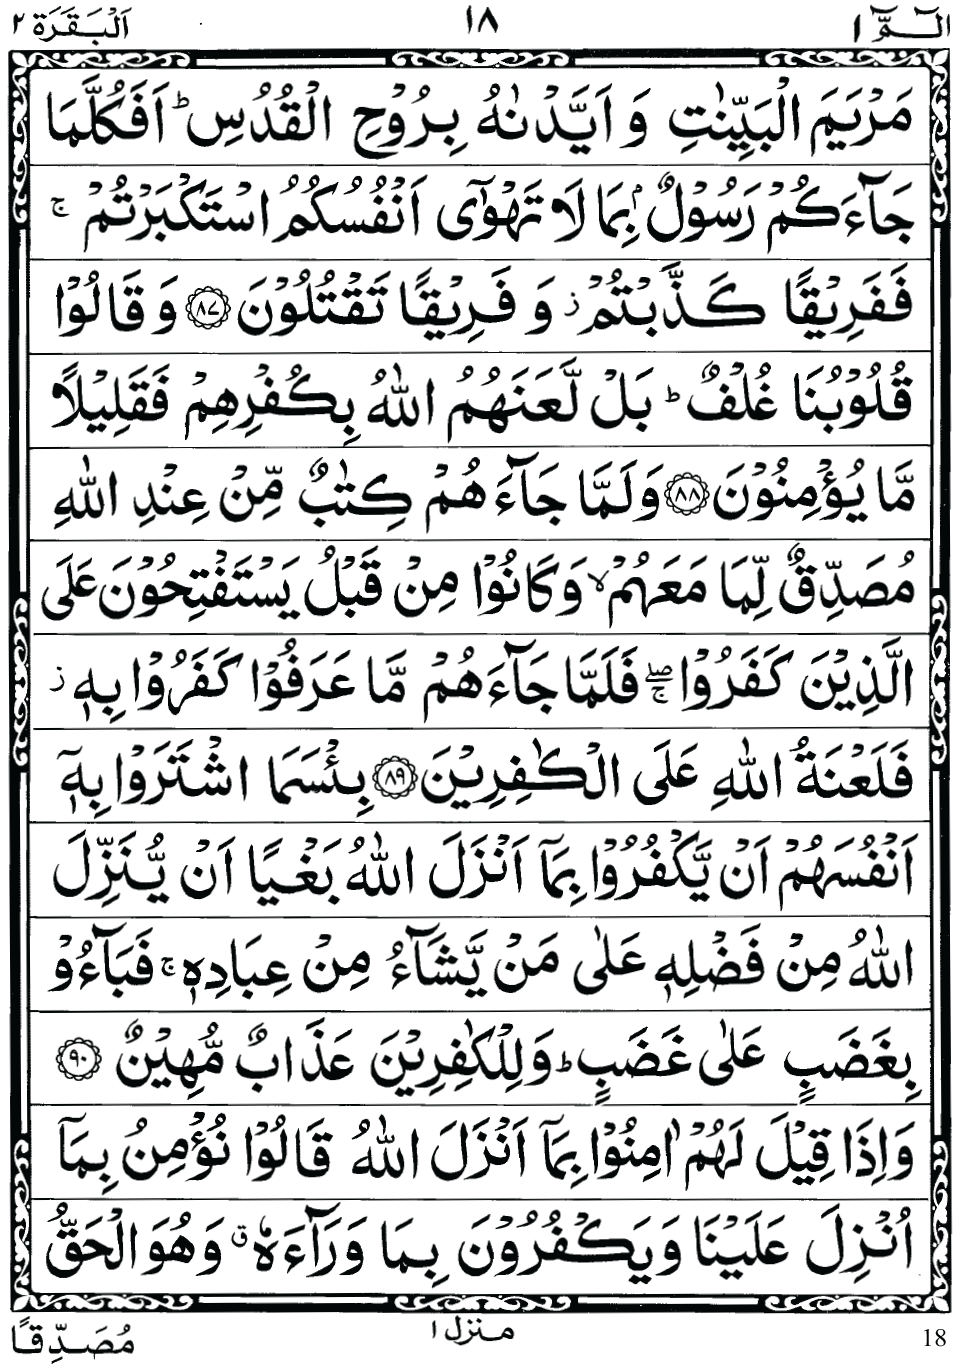 الٓـمّٓ ١ ١٨ اَلْبَقَرَة ٢
مَرْيَمَ الْبَيِّنٰتِ وَ اَيَّدْنٰهُ بِرُوْحِ الْقُدُسِ ؕ اَفَكُلَّمَا
جَآءَكُمْ رَسُوْلٌۢ بِمَا لَا تَهْوٰۤى اَنْفُسُكُمُ اسْتَكْبَرْتُمْ ۚ
فَفَرِيْقًا كَذَّبْتُمْ ؗ وَ فَرِيْقًا تَقْتُلُوْنَ ﴿۸۷﴾ وَ قَالُوْا
قُلُوْبُنَا غُلْفٌ ؕ بَلْ لَّعَنَهُمُ اللّٰهُ بِكُفْرِهِمْ فَقَلِيْلًا
مَّا يُؤْمِنُوْنَ ﴿۸۸﴾ وَلَمَّا جَآءَهُمْ كِتٰبٌ مِّنْ عِنْدِ اللّٰهِ
مُصَدِّقٌ لِّمَا مَعَهُمْ ۙ وَكَانُوْا مِنْ قَبْلُ يَسْتَفْتِحُوْنَ عَلَى
الَّذِيْنَ كَفَرُوْا ۖۚ فَلَمَّا جَآءَهُمْ مَّا عَرَفُوْا كَفَرُوْا بِهٖ ؗ
فَلَعْنَةُ اللّٰهِ عَلَى الْكٰفِرِيْنَ ﴿۸۹﴾ بِئْسَمَا اشْتَرَوْا بِهٖۤ
اَنْفُسَهُمْ اَنْ يَّكْفُرُوْا بِمَاۤ اَنْزَلَ اللّٰهُ بَغْيًا اَنْ يُّنَزِّلَ
اللّٰهُ مِنْ فَضْلِهٖ عَلٰى مَنْ يَّشَآءُ مِنْ عِبَادِهٖ ۚ فَبَآءُوْ
بِغَضَبٍ عَلٰى غَضَبٍ ؕ وَلِلْكٰفِرِيْنَ عَذَابٌ مُّهِيْنٌ ﴿۹۰﴾
وَاِذَا قِيْلَ لَهُمْ اٰمِنُوْا بِمَاۤ اَنْزَلَ اللّٰهُ قَالُوْا نُؤْمِنُ بِمَاۤ
اُنْزِلَ عَلَيْنَا وَيَكْفُرُوْنَ بِمَا وَرَآءَهٗ ۗ وَهُوَ الْحَقُّ
18 منزل ١ مُصَدِّقًا